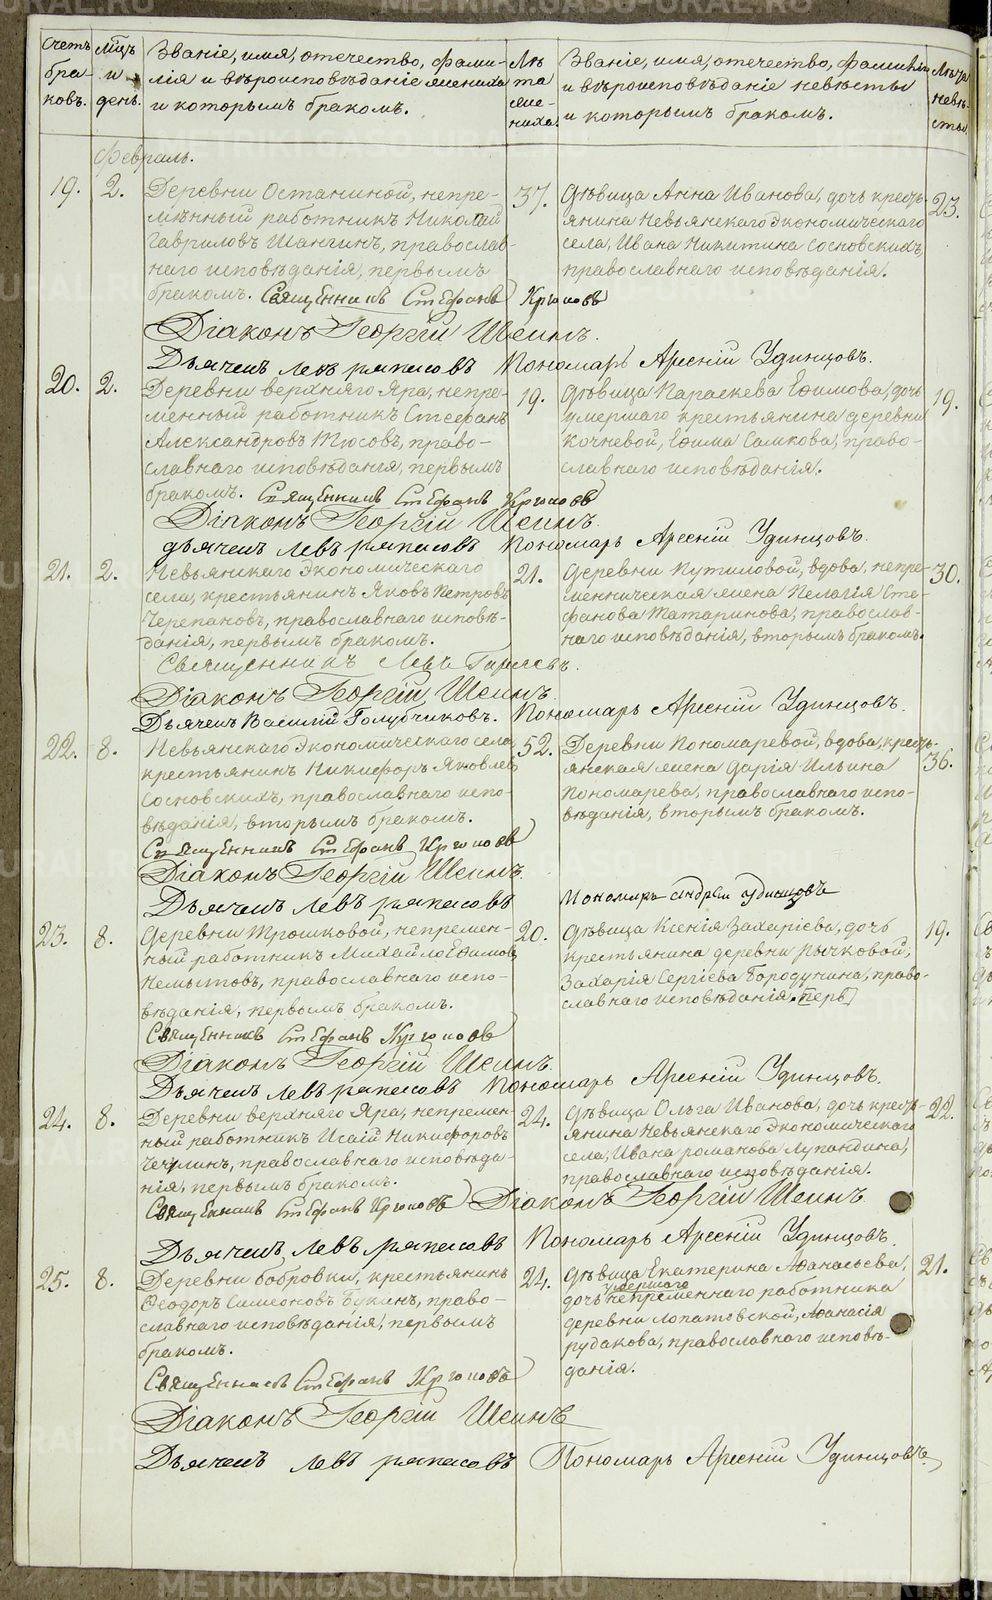 Счетъ браковъ.
Мѣсяцъ и день.
Званіе, имя, отечество, фами-
лія и вѣроисповѣданіе жениха
и которымъ бракомъ.
Лѣта жениха.
Званіе, имя, отечество, фамилія
и вѣроисповѣданіе невѣсты
и которымъ бракомъ.
Лѣта невѣсты.
Февраль.
19. 2.
Деревни Останиной, непре-
мѣнный работникъ Николай
Гавриловъ Шангинъ, православ-
наго исповѣданія, первымъ
бракомъ.
37.
Дѣвица Анна Иванова, дочь кресть-
янина Невьянскаго Экономическаго
села, Ивана Никитина Сосновскихъ,
православнаго исповѣданія.
23.
Священникъ Стефанъ
Діаконъ Георгій Шеинъ.
Дьячекъ Левъ
Пономарь Арсеній Удинцовъ.
20. 2.
Деревни верхняго Яра, непре-
менный работникъ Стефанъ
Александровъ Тюсовъ, право-
славнаго исповѣданія, первымъ
бракомъ.
19.
Дѣвица Параскева Ефимова, дочь
умершаго крестьянина деревни
Кочневой, Ефима Самкова, право-
славнаго исповѣданія.
19.
Священникъ Стефанъ
Діаконъ Георгій Шеинъ.
Дьячекъ Левъ
Пономарь Арсеній Удинцовъ.
21. 2.
Невьянскаго Экономическаго
села, крестьянинъ Яковъ Петровъ
Черепановъ, православнаго исповѣ-
данія, первымъ бракомъ.
21.
Деревни Путиловой, вдова, непре-
менническая жена Пелагія Сте-
фанова Татаринова, православ-
наго исповѣданія, вторымъ бракомъ.
30.
Священникъ Левъ
Діаконъ Георгій Шеинъ.
Дьячекъ Василій Голубчиковъ.
Пономарь Арсеній Удинцовъ.
22. 8.
Невьянскаго Экономическаго села
крестьянинъ Никифоръ Яковлевъ
Сосновскихъ, православнаго испо-
вѣданія, вторымъ бракомъ.
52.
Деревни Пономаревой, вдова, кресть-
янская жена Дарія Ильина
Пономарева, православнаго испо-
вѣданія, вторымъ бракомъ.
36.
Священникъ Стефанъ
Діаконъ Георгій Шеинъ.
Дьячекъ Левъ
Пономарь Андрей Удинцовъ
23. 8.
Деревни Трошковой, непремен-
ный работникъ Михайло Ефимовъ
Немытовъ, православнаго испо-
вѣданія, первымъ бракомъ.
20.
Дѣвица Ксенія Захаріева, дочь
крестьянина деревни Рычковой,
Захарія Сергіева Бородунина, право-
славнаго исповѣданія. перв
19.
Священникъ Стефанъ
Діаконъ Георгій Шеинъ.
Дьячекъ Левъ
Пономарь Арсеній Удинцовъ.
24. 8.
Деревни верхняго Яра, непремен-
ный работникъ Исаій Никифоровъ
Чечулинъ, православнаго исповѣда-
нія, первымъ бракомъ.
24.
Дѣвица Ольга Иванова, дочь кресть-
янина Невьянскаго Экономическаго
села, Ивана Романова Лупандина,
православнаго исповѣданія.
22.
Священникъ Стефанъ
Діаконъ Георгій Шеинъ.
Дьячекъ Левъ
Пономарь Арсеній Удинцовъ.
25. 8.
Деревни Бобровки, крестьянинъ
Ѳеодоръ Симеоновъ Букинъ, право-
славнаго исповѣданія, первымъ
бракомъ.
24.
Дѣвица Екатерина Аѳанасьева,
дочь умершаго непременнаго работника
деревни Лопатовской, Аѳанасія
Рудакова, православнаго исповѣ-
данія.
21.
Священникъ Стефанъ
Діаконъ Георгій Шеинъ
Дьячекъ Левъ
Пономарь Арсеній Удинцовъ.
METRIKI.GASO-URAL.RU